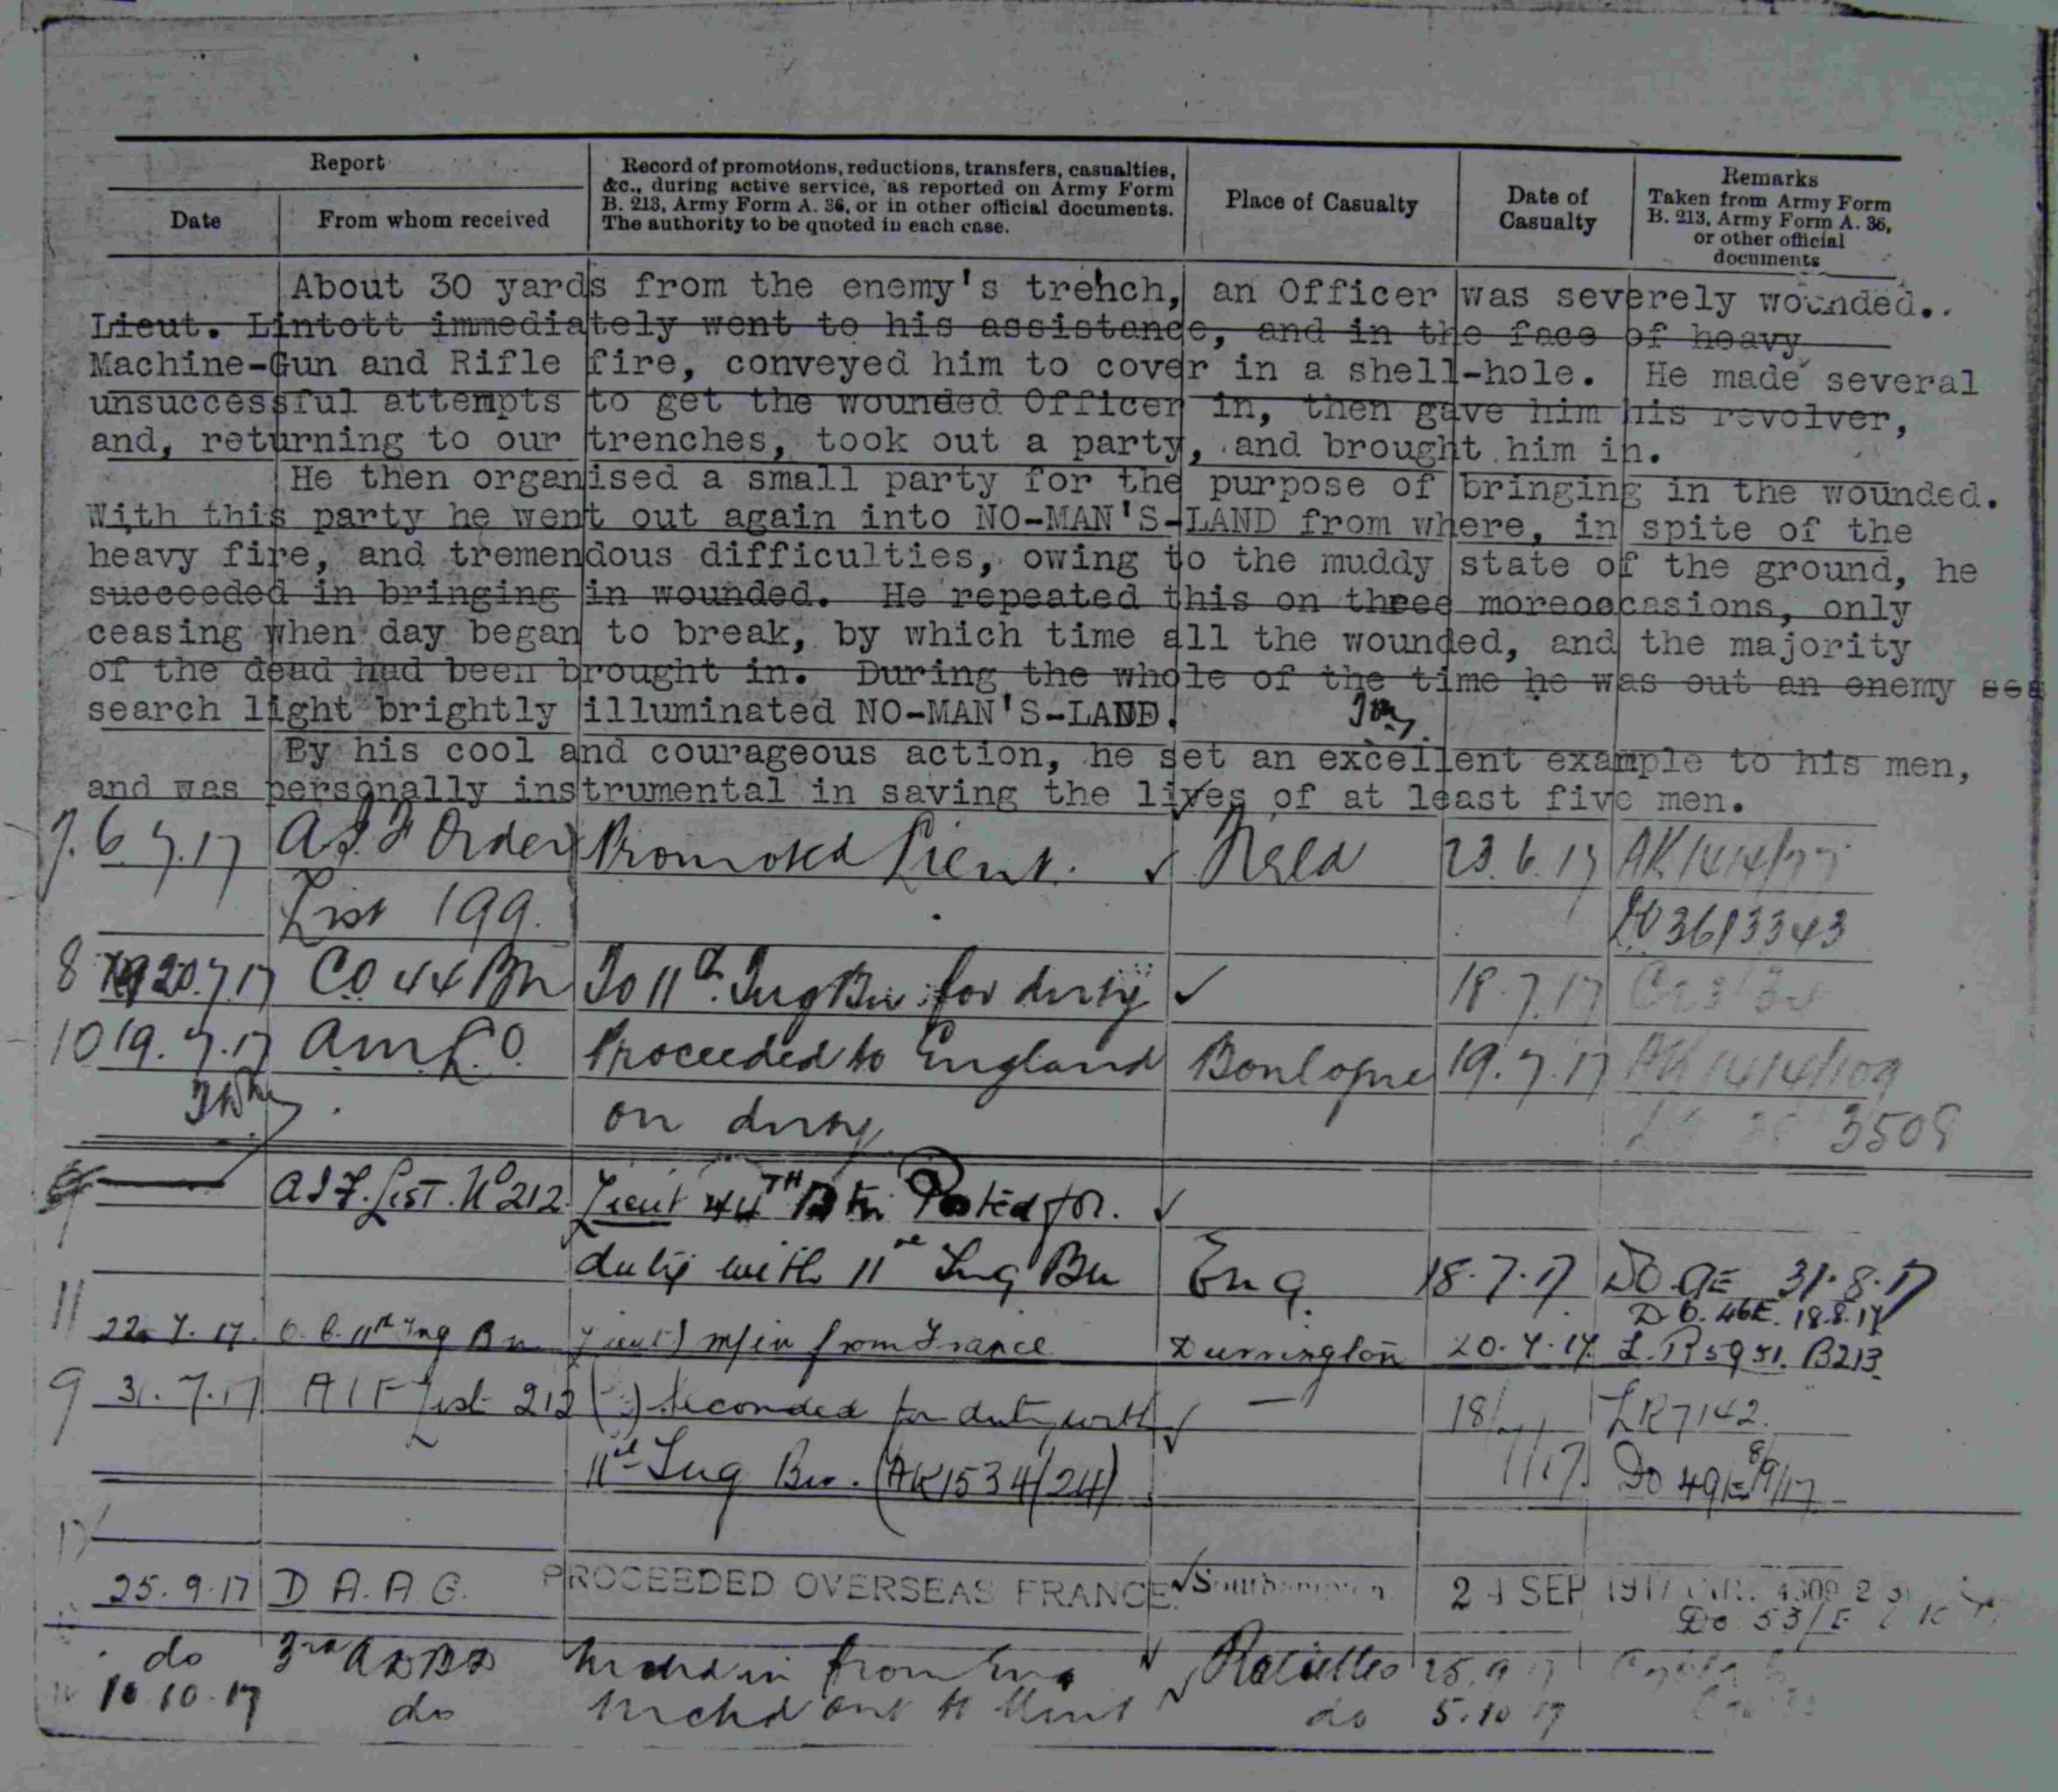 Report
Date
From whom received
Record of promotions, reductions, transfers, casualties,
&c., during active service, as reported on Army Form
B. 213, Army Form A. 36, or in other official documents.
The authority to be quoted in each case.
Place of Casualty
Date of
Casualty
Remarks
Taken from Army Form
B. 213, Army Form A. 36,
or other official
documents
About 30 yards from the enemy's trench, an Officer was severely wounded..
Lieut. Lintott immediately went to his assistance, and in the face of heavy
Machine-Gun and Rifle fire, conveyed him to cover in a shell-hole. He made several
unsuccessful attempts to get the wounded Officer in, then gave him his revolver,
and, returning to our trenches, took out a party, and brought him in.
He then organised a small party for the purpose of bringing in the wounded.
With this party he went out again into NO-MAN'S-LAND from where, in spite of the
heavy fire, and tremendous difficulties, owing to the muddy state of the ground, he
succeeded in bringing in wounded. He repeated this on three moreoccasions, only
ceasing when day began to break, by which time all the wounded, and the majority
of the dead had been brought in. During the whole of the time he was out an enemy sea
search light brightly illuminated NO-MAN'S-LAND.
By his cool and courageous action, he set an excellent example to his men,
and was personally instrumental in saving the lives of at least five men.
7. 6.7.17 A.I.F Orders Promoted Lieut. Field 23.6.17 AK1414/77
List 199. 3613343
8 20.7.17 CO 44 Bn To 11th Trng Bn for duty 18.7.17
10 19.7.17 A.M.L.O. Proceeded to England Boulogne 19.7.17 AK1414/109
on duty 3508
A I F. List. No 212. Lieut 44TH Btn Posted for
duty with 11th Trng Bn Eng. 18.7.17 DO 31.8.17
D.O. 46E. 18.8.17
11 22.7.17. O.C. 11th Trng Bn Lieut) m/in from France Durrington 20.7.17. L.R5951. B213
9 31.7.17 AIF List 212 Seconded for duty with — 18/7/17 LR7142.
11th Trng Bn. (AK1534/24) DO 49E 8/9/17
25.9.17 D A.A G. PROCEEDED OVERSEAS FRANCE. Southampton 24 SEP 1917
DO 53/E
do 3rd ADBD Mchd in from Eng Rouelles 25.9.17
10.10.17 do Mchd out to Unit do 5.10.17